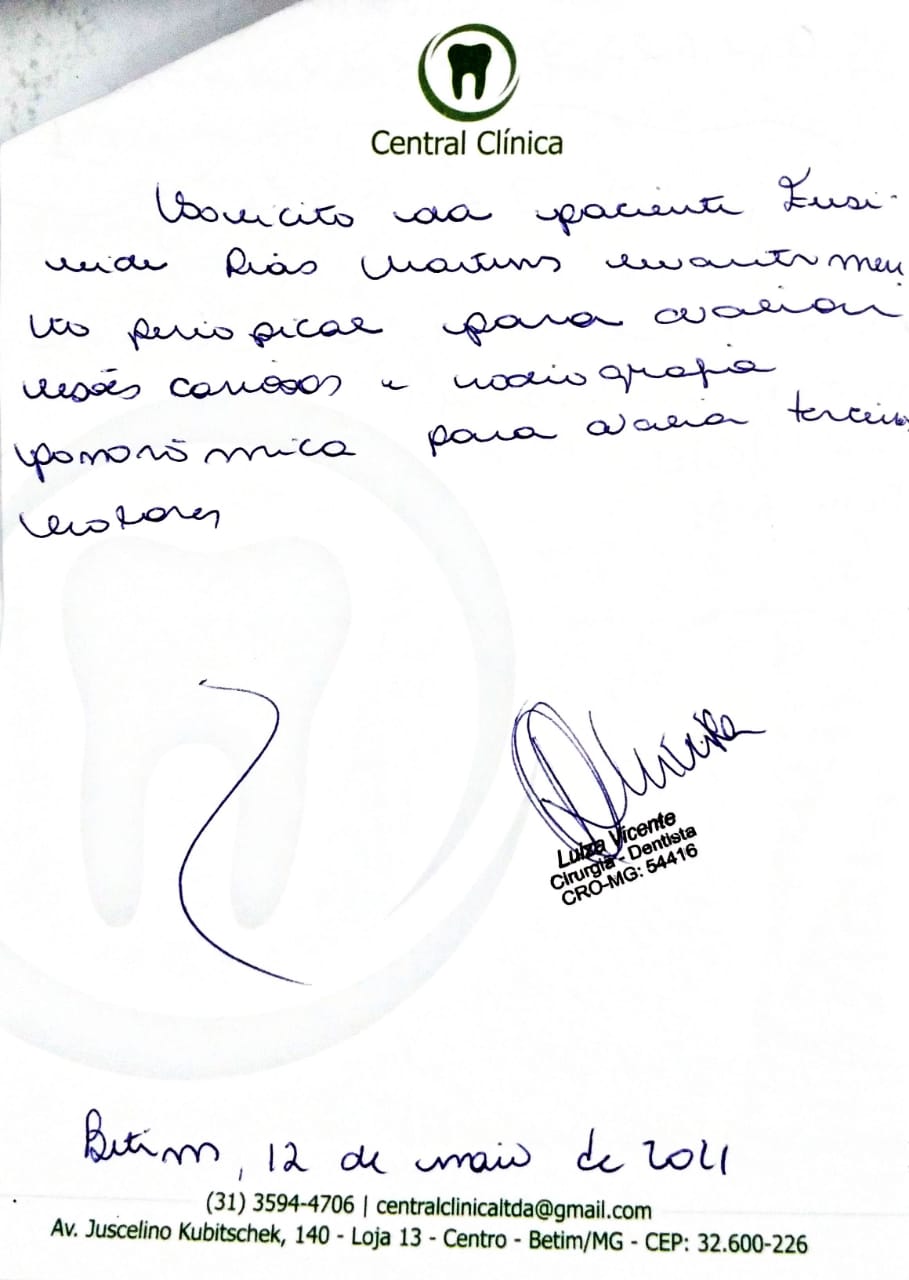 Central Clínica
Solicito da paciente Zusi-
neide Dias Martins levantamen
to periapical para avaliar
lesões cariosas e radiografia
panorâmica para avaliar terceiros
molares
Luiza Vicente
Cirurgiã - Dentista
CRO-MG: 54416
Betim, 12 de maio de 2021
(31) 3594-4706 | centralclinicaltda@gmail.com
Av. Juscelino Kubitschek, 140 - Loja 13 - Centro - Betim/MG - CEP: 32.600-226